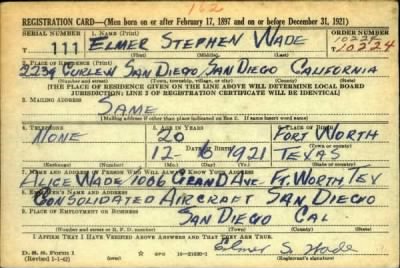 162
REGISTRATION CARD—(Men born on or after February 17, 1897 and on or before December 31, 1921)
SERIAL NUMBER 1. NAME (Print) ORDER NUMBER
111 ELMER STEPHEN WADE 10224
(First) (Middle) (Last)
2. PLACE OF RESIDENCE (Print)
2239 CURLEW SAN DIEGO, SAN DIEGO CALIFORNIA
(Number and street) (Town, township, village, or city) (County) (State)
[THE PLACE OF RESIDENCE GIVEN ON THE LINE ABOVE WILL DETERMINE LOCAL BOARD
JURISDICTION; LINE 2 OF REGISTRATION CERTIFICATE WILL BE IDENTICAL]
3. MAILING ADDRESS
SAME
[Mailing address if other than place indicated on line 2. If same insert word same]
4. TELEPHONE 5. AGE IN YEARS 6. PLACE OF BIRTH
NONE 20 FORT WORTH
DATE OF BIRTH (Town or county)
12 6 1921 TEXAS
(Exchange) (Number) (Mo.) (Day) (Yr.) (State or country)
7. NAME AND ADDRESS OF PERSON WHO WILL ALWAYS KNOW YOUR ADDRESS
ALICE WADE 1006 GRAND AVE. FT. WORTH TEX
8. EMPLOYER'S NAME AND ADDRESS
CONSOLIDATED AIRCRAFT SAN DIEGO
9. PLACE OF EMPLOYMENT OR BUSINESS
SAN DIEGO CAL
(Number and street or R. F. D. number) (Town) (County) (State)
I AFFIRM THAT I HAVE VERIFIED ABOVE ANSWERS AND THAT THEY ARE TRUE.
D. S. S. Form 1 GPO Elmer S. Wade
(Revised 1-1-42) (Registrant's signature)